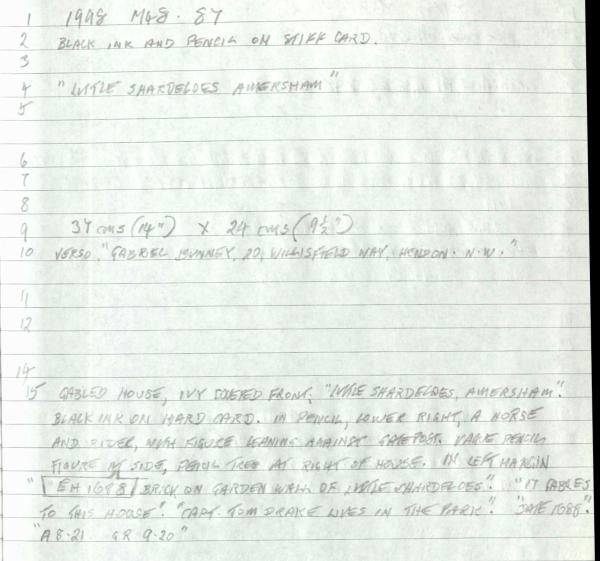 1 1998 M48. 87
2 BLACK INK AND PENCIL ON STIFF CARD.
3
4 "LITTLE SHARDELOES AMERSHAM"
5
6
7
8
9 37 cms (14") X 24 cms (9½")
10 VERSO, "GABRIEL BUNNEY, 20, WILLISFIELD WAY, HENDON. N.W."
11
12
14
15 GABLED HOUSE, IVY COVERED FRONT, "LITTLE SHARDELOES, AMERSHAM".
BLACK INK ON HARD CARD. IN PENCIL, LOWER RIGHT, A HORSE
AND RIDER, WITH FIGURE LEANING AGAINST GATEPOST. VAGUE PENCIL
FIGURE AT SIDE, PENCIL TREE AT RIGHT OF HOUSE. IN LEFT MARGIN
" EH 1688 BRICK ON GARDEN WALL OF LITTLE SHARDELOES". "17 GABLES
TO THIS HOUSE". "CAPT. TOM DRAKE LIVES IN THE PARK". "DATE 1688".
"A 8.21 GR 9.20"